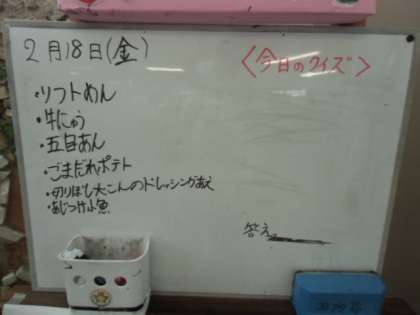 2月18日(金)
〈今日のクイズ〉
・ソフトめん
・牛にゅう
・五目あん
・ごまだれポテト
・切りぼし大こんのドレッシングあえ
・あじつけ小魚
答え